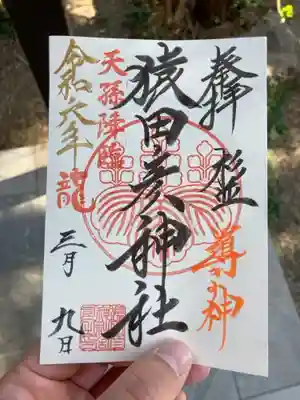 奉拝
杉並
導きの神
猿田彦神社
天孫降臨
令和六年
龍
三月
九日